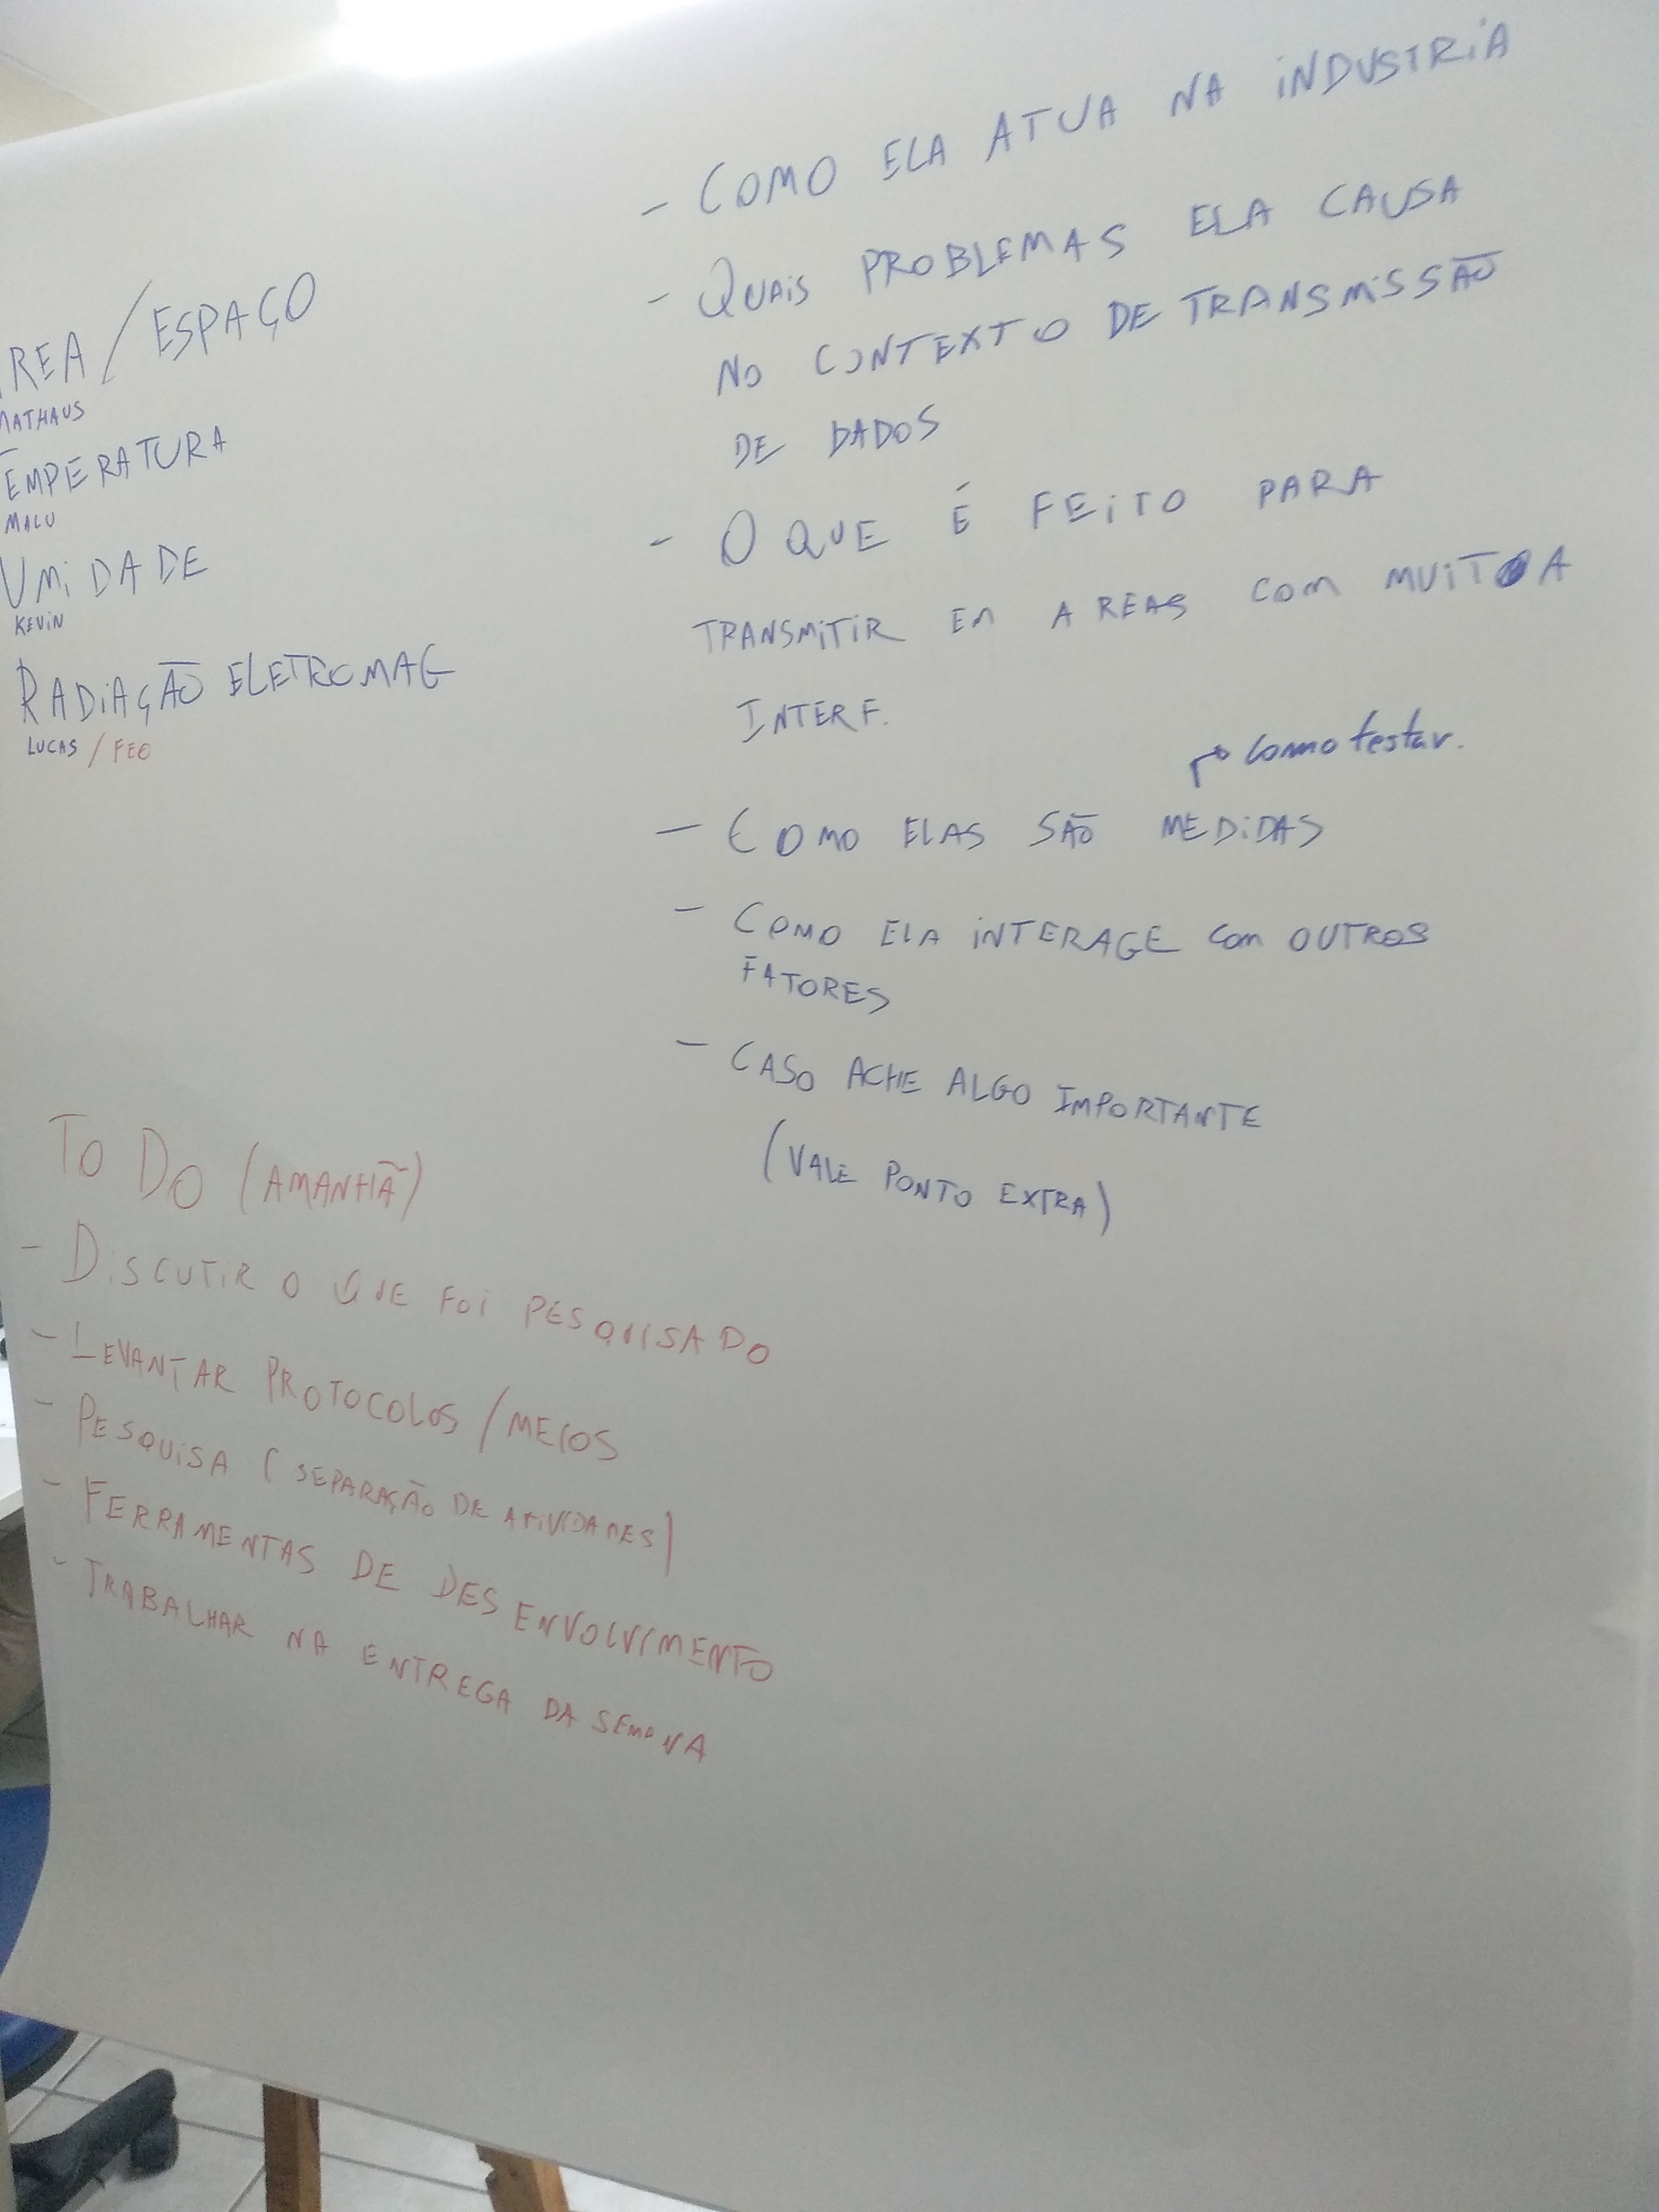 REA / ESPAÇO
MATHAUS
TEMPERATURA
MALU
UMIDADE
KEVIN
RADIAÇÃO ELETROMAG
LUCAS / FEO
- COMO ELA ATUA NA INDUSTRIA
- QUAIS PROBLEMAS ELA CAUSA
NO CONTEXTO DE TRANSMISSÃO
DE DADOS
- O QUE É FEITO PARA
TRANSMITIR EM AREAS COM MUITA
INTERF.
↱ como testar.
- COMO ELAS SÃO MEDIDAS
- COMO ELA INTERAGE COM OUTROS
FATORES
- CASO ACHE ALGO IMPORTANTE
(VALE PONTO EXTRA)
TO DO (AMANHÃ)
- DISCUTIR O QUE FOI PESQUISADO
- LEVANTAR PROTOCOLOS / MEIOS
- PESQUISA (SEPARAÇÃO DE ATIVIDADES)
- FERRAMENTAS DE DESENVOLVIMENTO
- TRABALHAR NA ENTREGA DA SEMANA